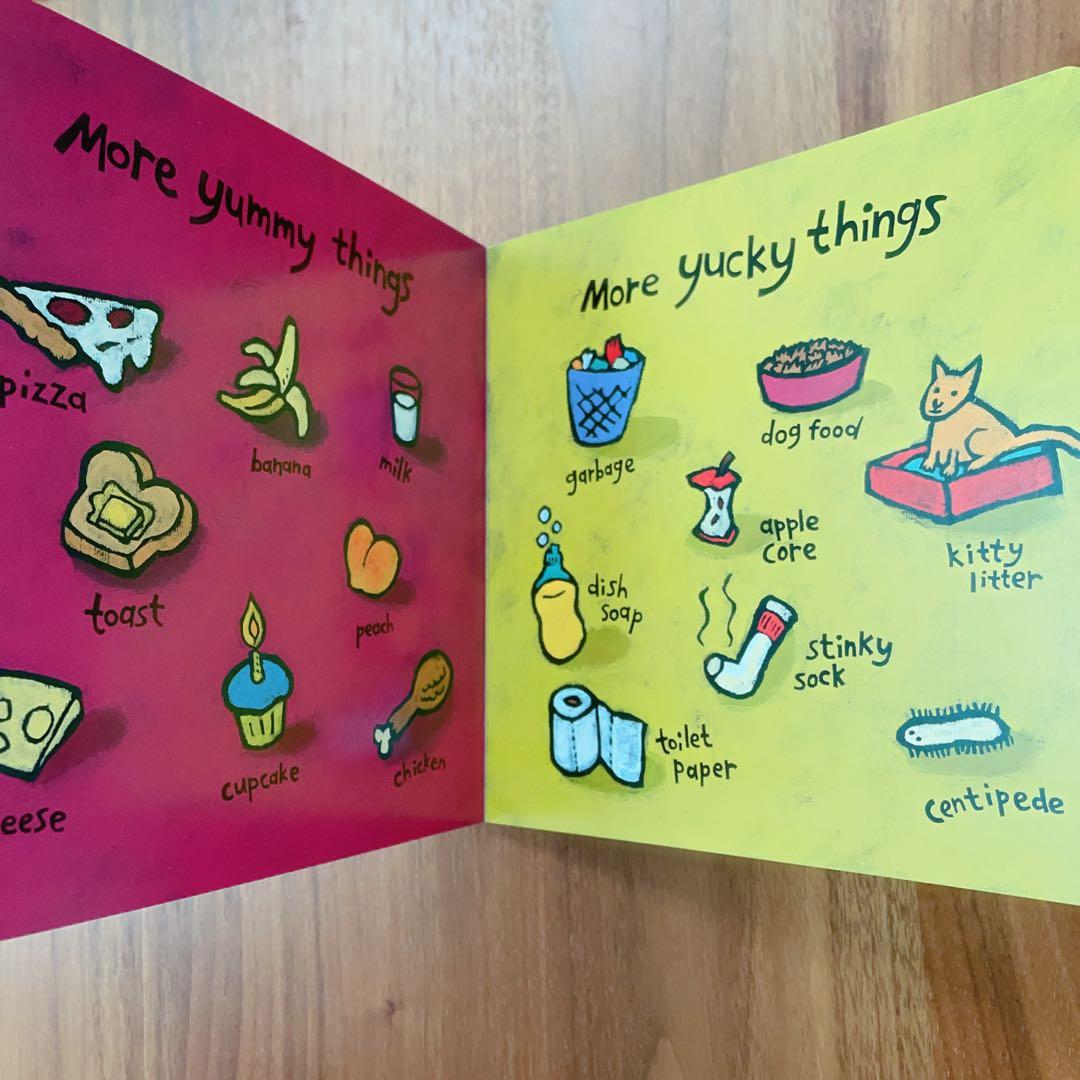 More yummy things
pizza
banana
milk
toast
peach
eese
cupcake
chicken
More yucky things
garbage
dog food
apple
core
kitty
litter
dish
soap
stinky
sock
toilet
paper
centipede